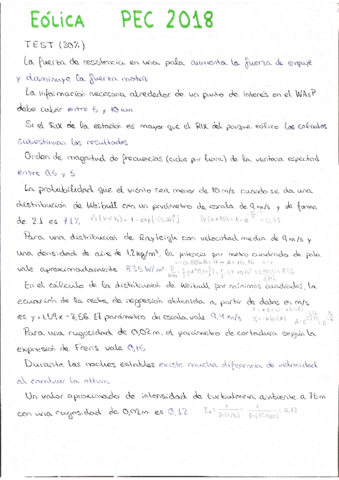 EÓLICA PEC 2018
TEST (30%)
La fuerza de resistencia en una pala aumenta la fuerza de empuje
y disminuye la fuerza motriz
La información necesaria alrededor de un punto de interés en el WAsP
debe cubrir entre 5 y 10 km
Si el RIX de la estación es mayor que el RIX del parque eólico los cálculos
subestiman los resultados
Orden de magnitud de frecuencias (ciclos por hora) de la ventana espectral
entre 0,5 y 5
La probabilidad que el viento sea menor de 10 m/s cuando se da una
distribución de Weibull con un parámetro de escala de 9 m/s y de forma
de 2.1 es 71%
Para una distribución de Rayleigh con velocidad media de 9 m/s y
una densidad de aire de 1,2 kg/m³, la potencia por metro cuadrado de pala
vale aproximadamente 835 W/m²
En el cálculo de la distribución de Weibull por mínimos cuadrados, la
ecuación de la recta de regresión obtenida a partir de datos en m/s
es y = 1,59x - 3,56. El parámetro de escala vale 9,4 m/s
Para una rugosidad de 0,02m, el parámetro de cortadura según la
expresión de Freris vale 0,15
Durante las noches estables existe mucha diferencia de velocidad
al cambiar la altura
Un valor aproximado de intensidad de turbulencia ambiente a 75m
con una rugosidad de 0,02m es 0,12